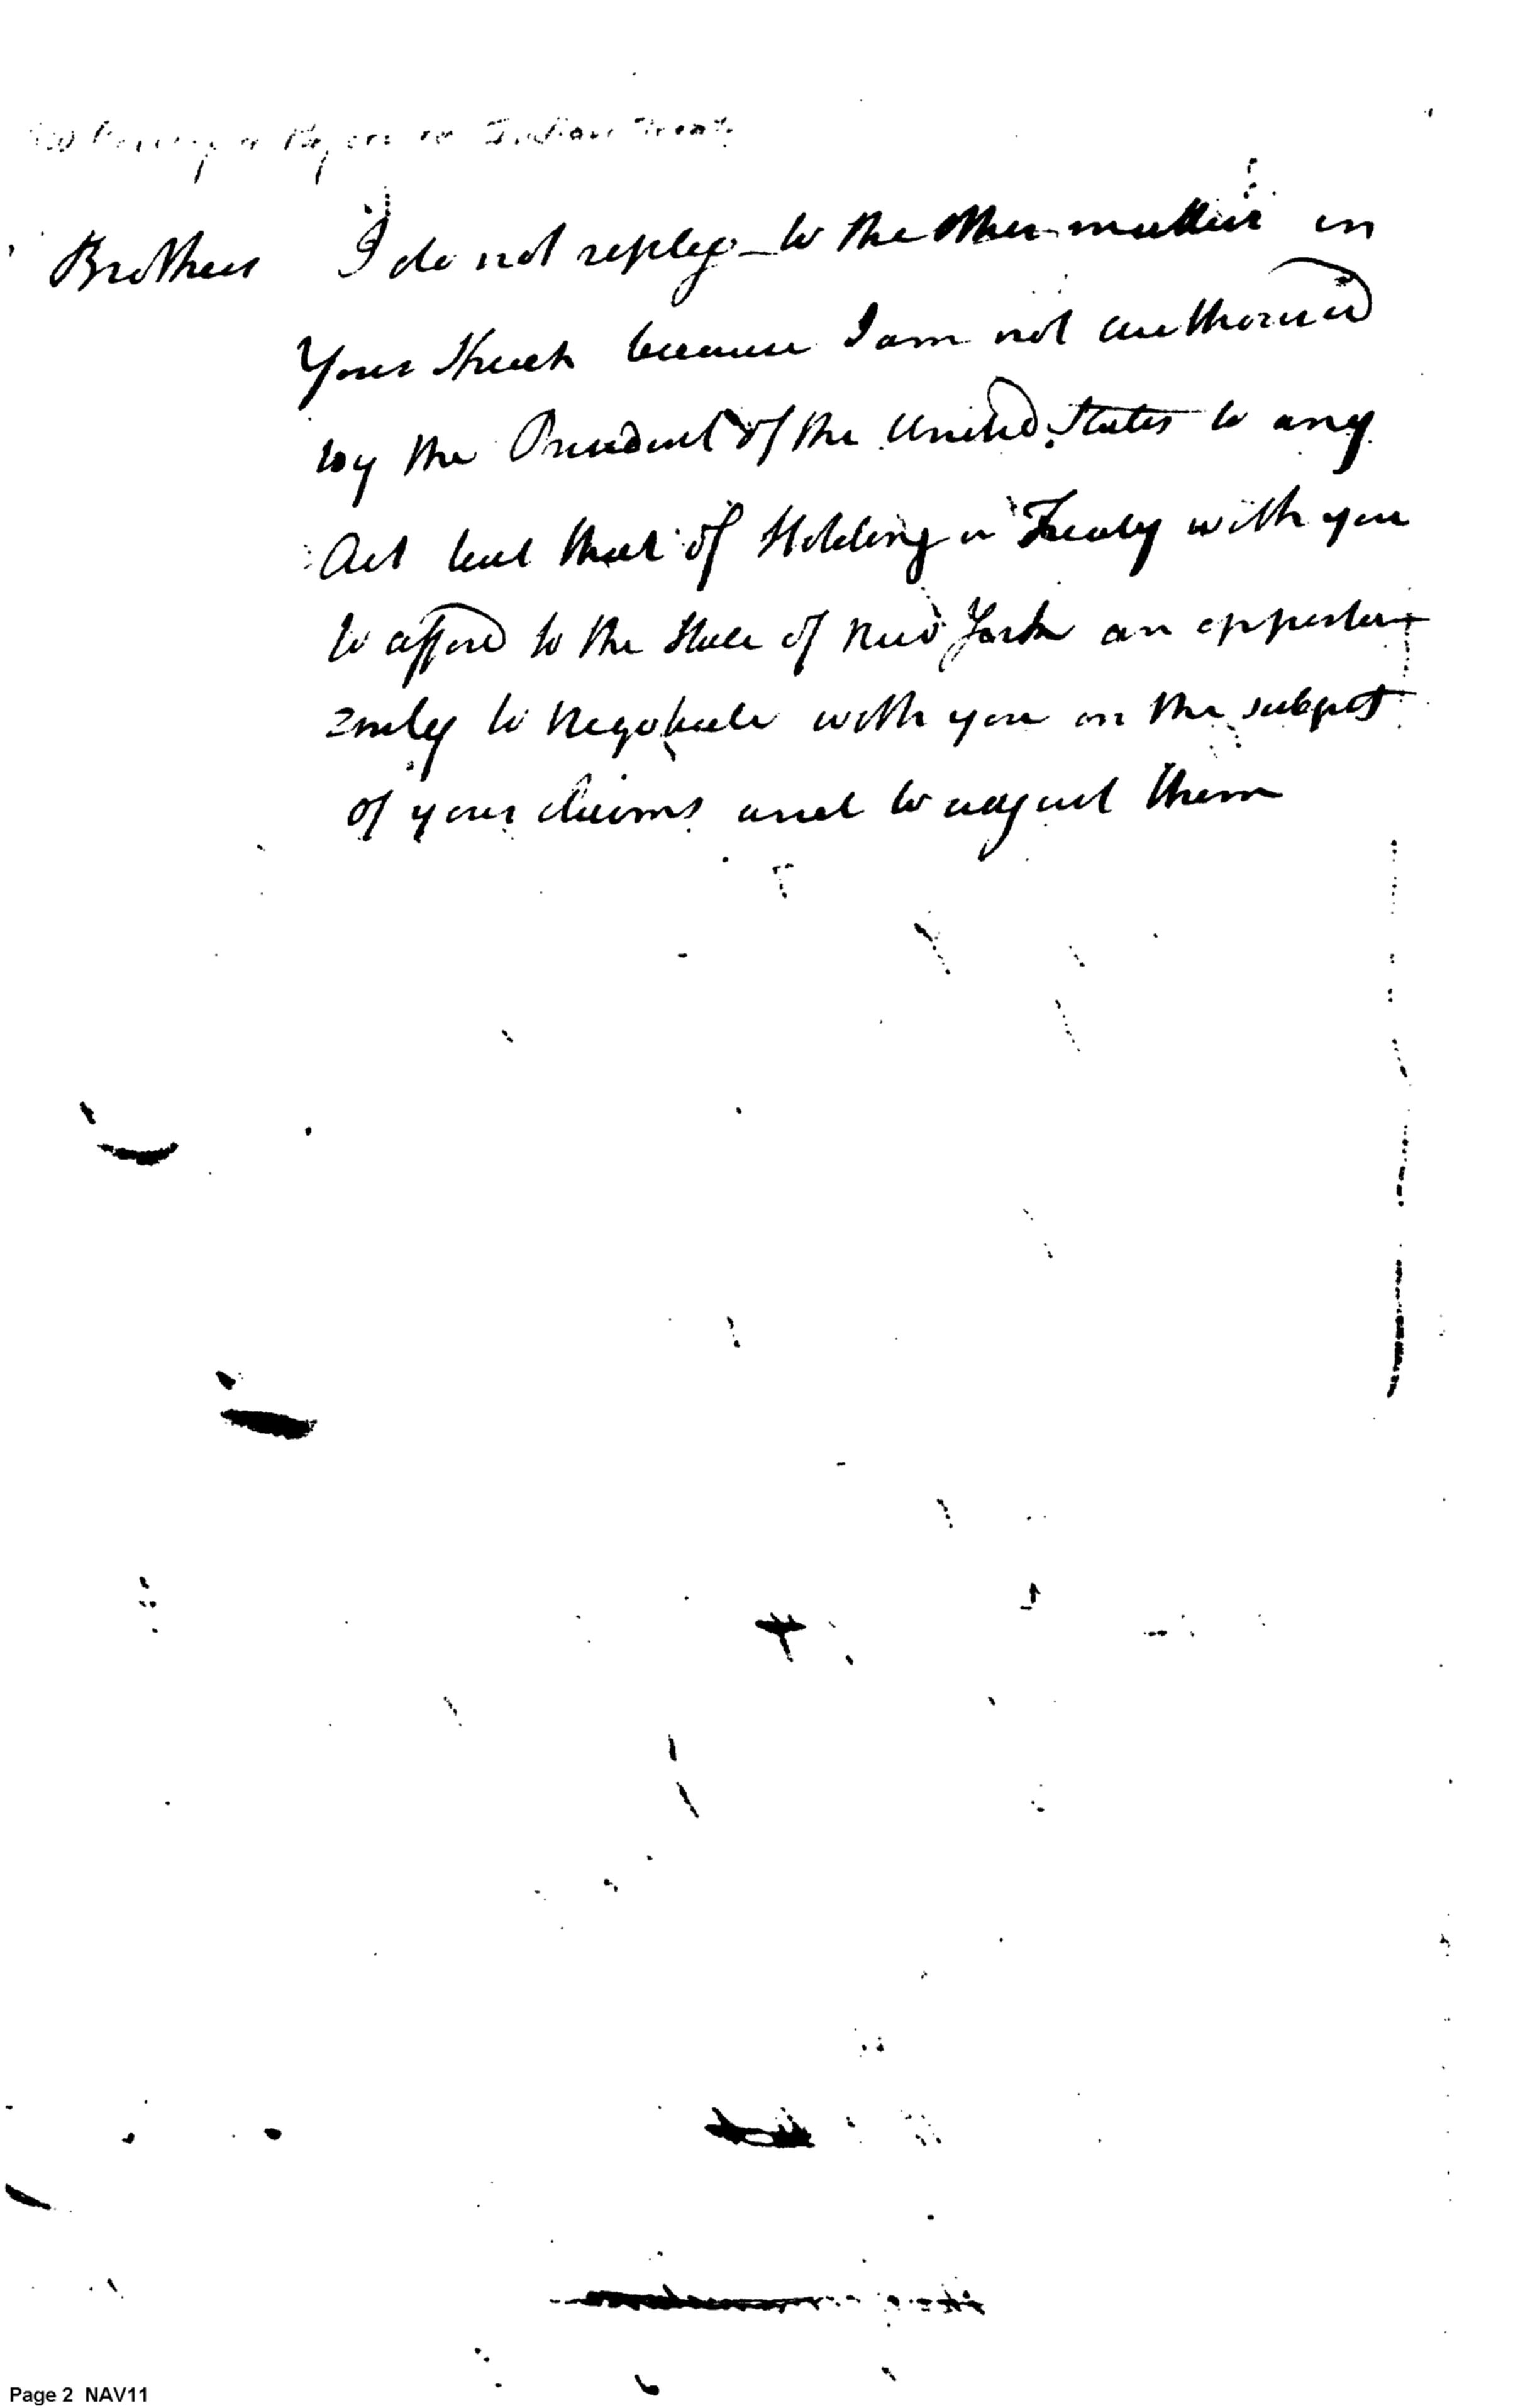 Indian Treaty
Brothers I do not reply to the other matters in
Your Speech because I am not authorised
by the President of the United States to any
Act but that of Holding a Treaty with you
to afford to the State of New York an opportu
=nity to Negotiate with you on the subject
of your claims and to adjust them
Page 2 NAV11